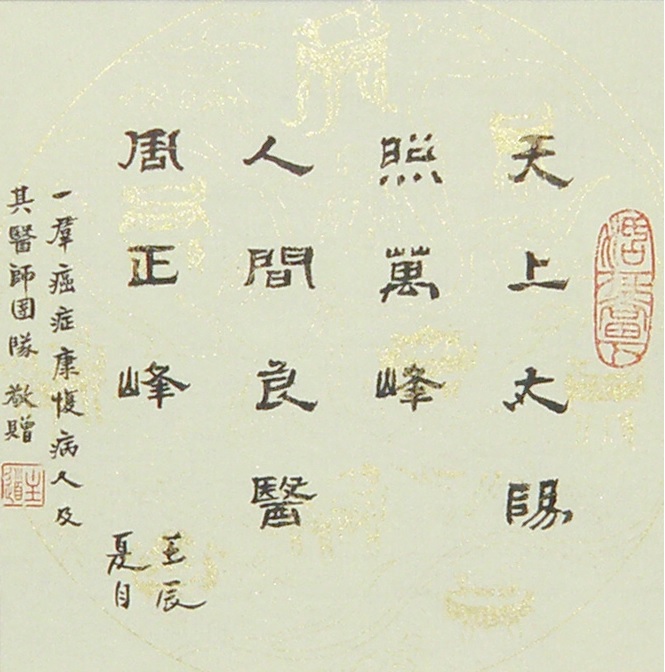 天上太陽
照萬峰
人間良醫
周正峰
壬辰
夏月
一羣癌症康復病人及
其醫師团隊敬贈